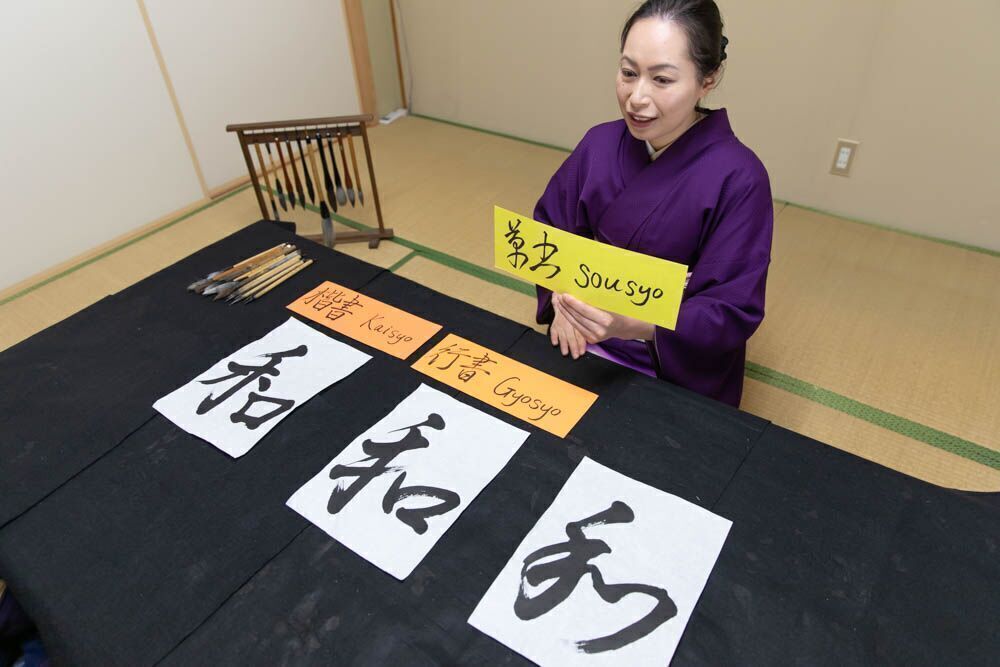 草書 sousyo
楷書 Kaisyo
行書 Gyosyo
和
和
和